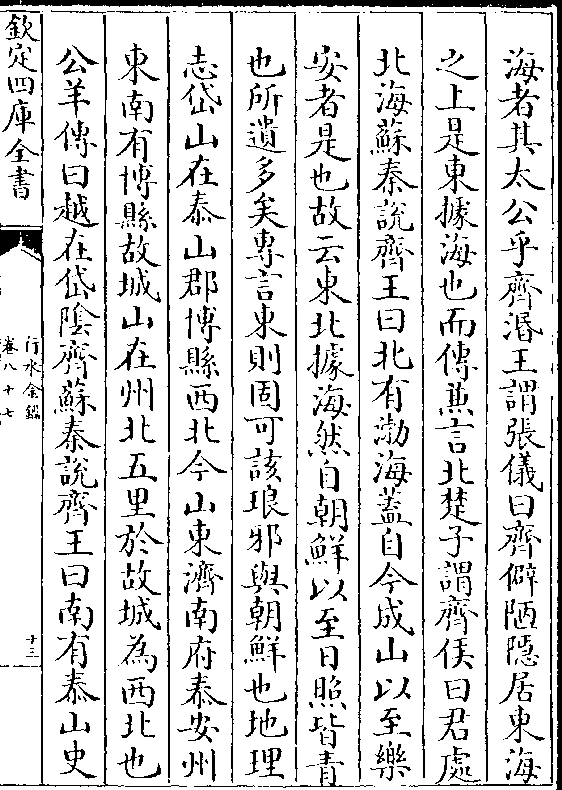 海者其太公乎齊湣王謂張儀曰齊僻陋隱居東海
之上是東據海也而傳兼言北楚子謂齊侯曰君處
北海蘇秦說齊王曰北有渤海蓋自今成山以至樂
安者是也故云東北據海然自朝鮮以至日照皆青
也所遺多矣專言東則固可該琅邪與朝鮮也地理
志岱山在泰山郡博縣西北今山東濟南府泰安州
東南有博縣故城山在州北五里於故城為西北也
公羊傳曰越在岱陰齊蘇秦說齊王曰南有泰山史
欽定四庫全書
行水金鑑
卷八十七
十三